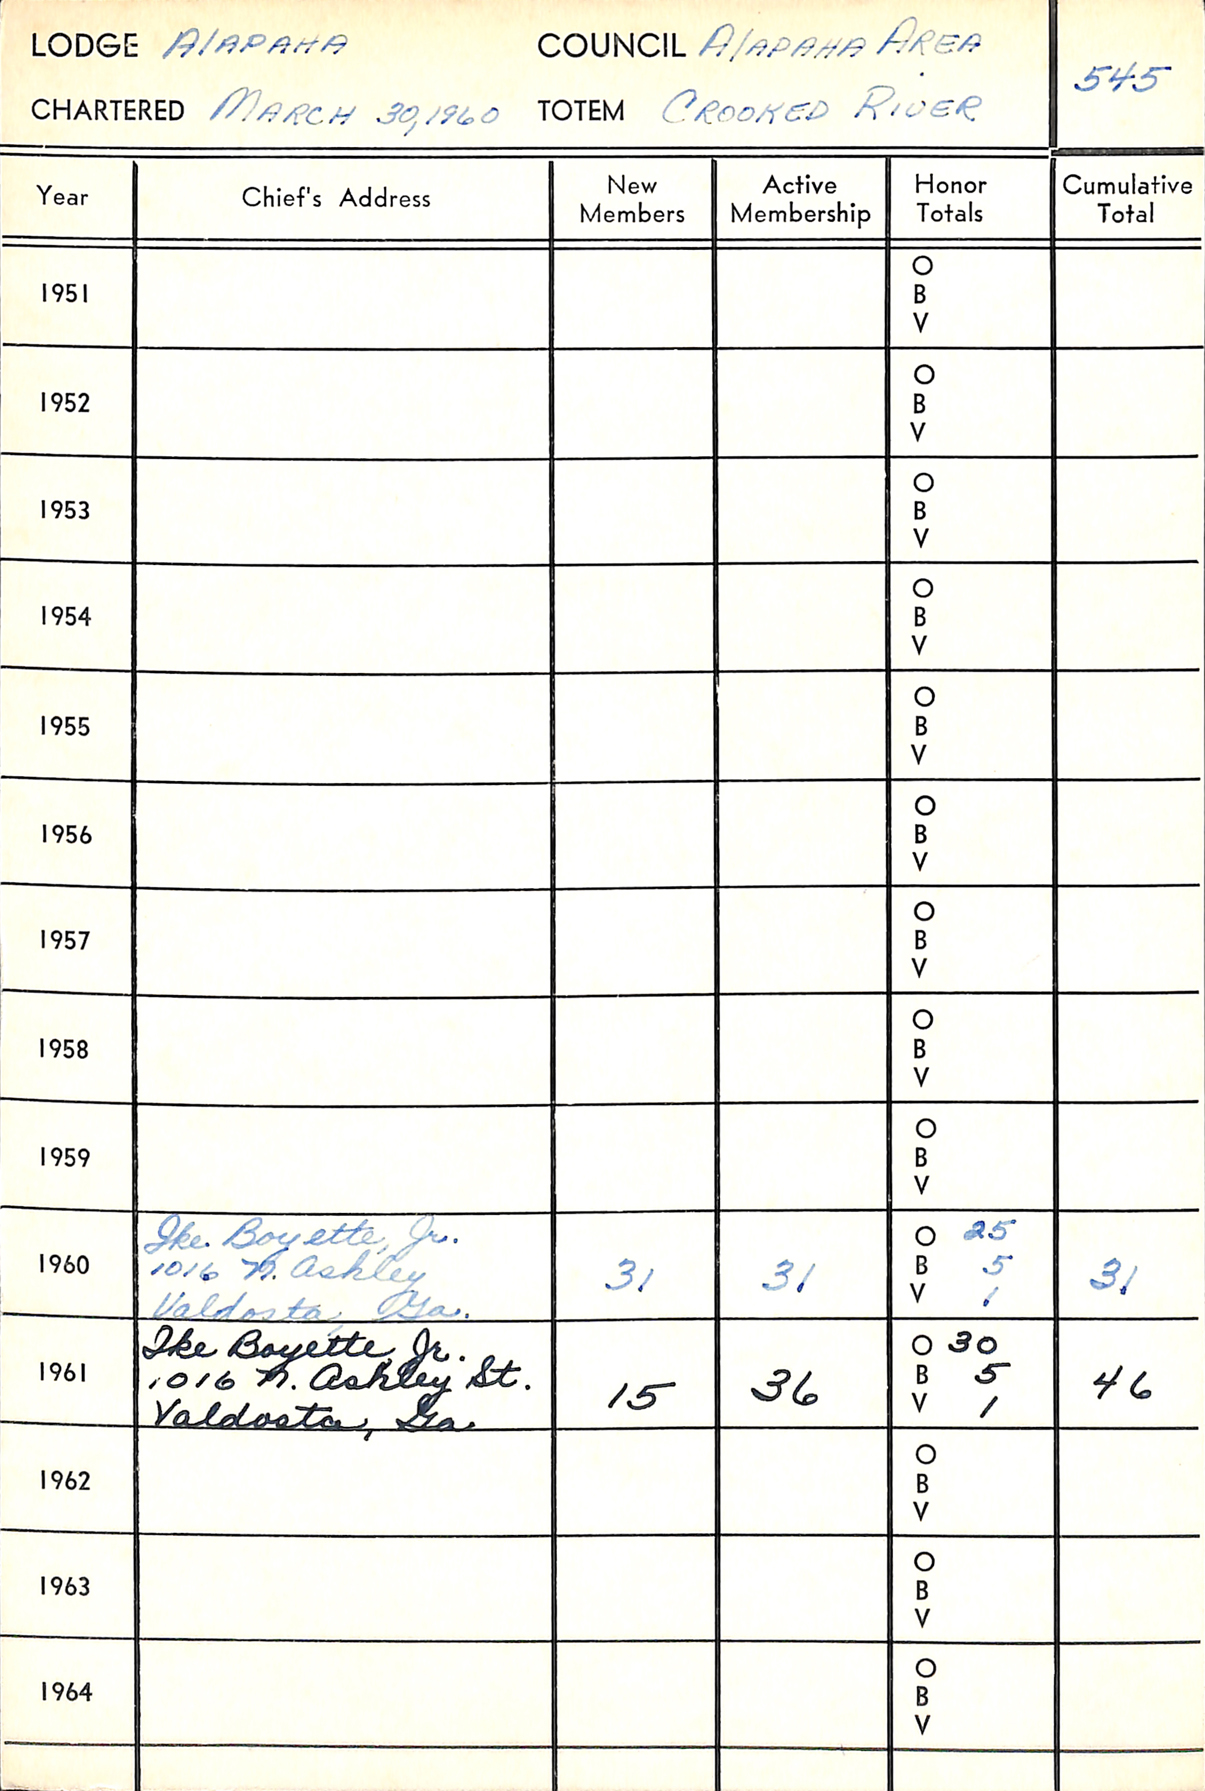 LODGE Alapaha COUNCIL Alapaha Area 545
CHARTERED March 30, 1960 TOTEM Crooked River
Year Chief's Address New Members Active Membership Honor Totals Cumulative Total
1951 O
B
V
1952 O
B
V
1953 O
B
V
1954 O
B
V
1955 O
B
V
1956 O
B
V
1957 O
B
V
1958 O
B
V
1959 O
B
V
Ike Boyette, Jr. O 25
1960 1016 N. Ashley 31 31 B 5 31
Valdosta, Ga. V 1
Ike Boyette, Jr. O 30
1961 1016 N. Ashley St. 15 36 B 5 46
Valdosta, Ga. V 1
1962 O
B
V
1963 O
B
V
1964 O
B
V